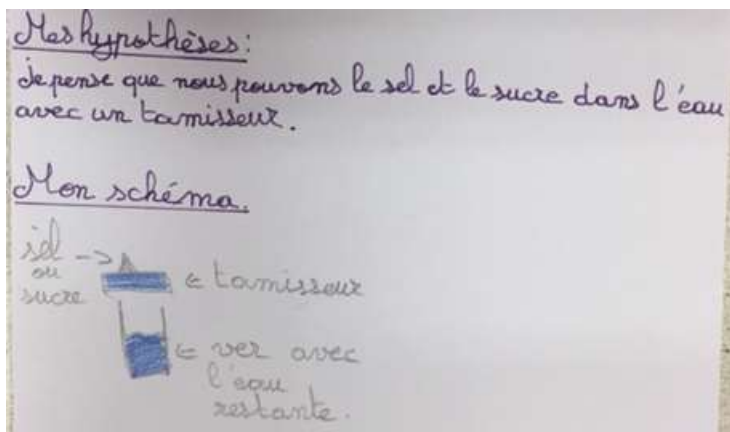 Mes hypothèses:
Je pense que nous pouvons le sel et le sucre dans l'eau
avec un tamisseur.
Mon schéma.
sel ->
ou
sucre
← tamisseur
← ver avec
l'eau
restante.